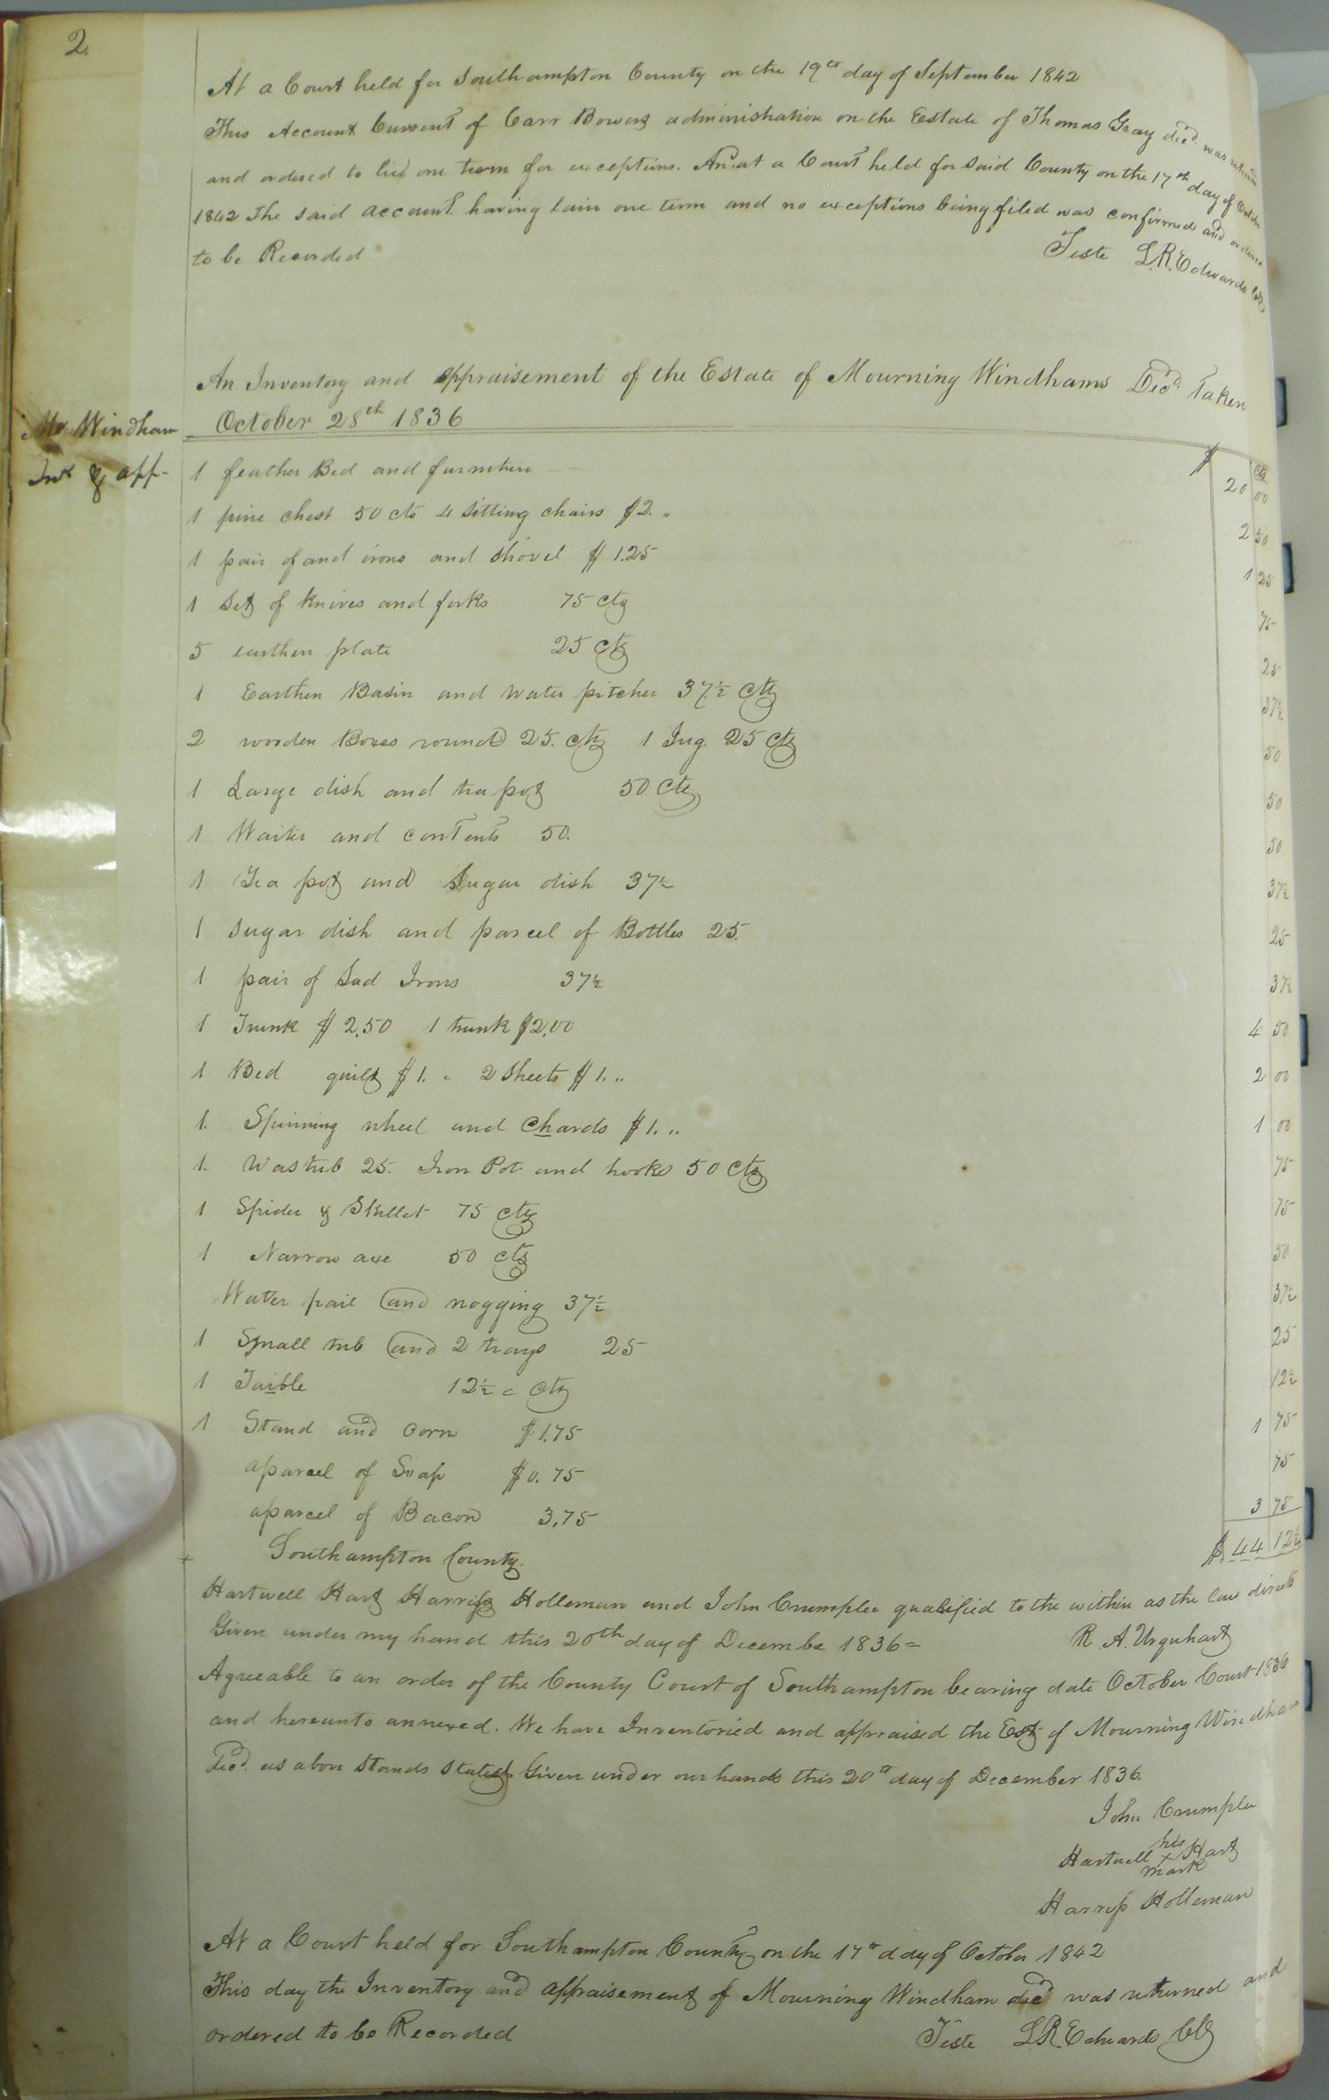 2.
At a Court held for Southampton County on the 19th day of September 1842
This Account Current of Carr Bowers administration on the Estate of Thomas Gray decd. was
and ordered to lie one term for exceptions. And at a Court held for said County on the 17th day of
1842 The said account having lain one term and no exceptions being filed was confirmed and
to be Recorded
Teste L.R. Edwards
An Inventory and appraisement of the Estate of Mourning Windhams Decd. Taken
October 28th 1836
Windham
Invt & app
$ cts
1 feather Bed and furniture 20 00
1 pine chest 50 cts 4 sitting chairs $2. „ 2 50
1 pair of and irons and shovel $1.25 1 25
1 Set of knives and forks 75 cts 75
5 earthen plate 25 cts 25
1 Earthen Basin and water pitcher 37½ cts 37½
2 wooden Boxes round 25. cts 1 Jug. 25 cts 50
1 Large dish and tea pot 50 cts 50
1 Waiter and contents 50. 50
1 Tea pot and Sugar dish 37½ 37½
1 Sugar dish and parcel of Bottles 25. 25
1 pair of Sad Irons 37½ 37½
1 Trunk $2.50 1 trunk $2.00 4 50
1 Bed quilt $1. „ 2 Sheets $1. „ 2 00
1. Spinning wheel and Chards $1. „ 1 00
1. Wastub 25. Iron Pot and hooks 50 cts 75
1 Spider & Skillet 75 cts 75
1 Narrow axe 50 cts 50
Water pail and nogging 37½ 37½
1 Small tub and 2 trays 25 25
1 Taible 12½ = cts 12½
1 Stand and corn $1.75 1 75
aparcel of Soap $0.75 75
aparcel of Bacon 3.75 3 75
Southampton County. $44 12½
Hartwell Hart Harriss Holleman and John Crumpler qualified to the within as the law directs
Given under my hand this 20th day of Decembe 1836 = R. A. Urquhart
Agreeable to an order of the County Court of Southampton bearing date October Court 1836
and hereunto annexed. We have Inventoried and appraised the Est of Mourning Windham
decd. as above Stands Stated Given under our hands this 20th day of December 1836.
John Crumpler
his
Hartwell x Hart
mark
Harriss Holleman
At a Court held for Southampton County on the 17th day of October 1842
This day the Inventory and appraisement of Mourning Windham decd was returned and
ordered to be Recorded
Teste L.R. Edwards Clk